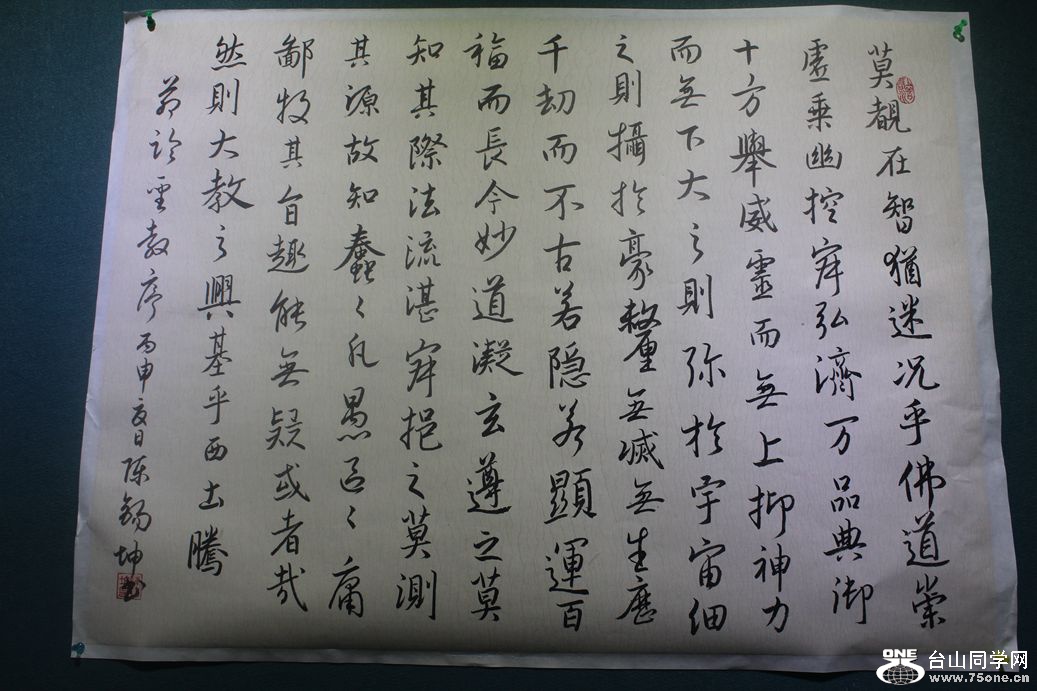 莫覩在智猶迷况乎佛道崇
虛乗幽控寂弘濟万品典御
十方舉威靈而無上抑神力
而無下大之則弥於宇宙細
之則攝於豪釐無滅無生歷
千劫而不古若隐若顯運百
福而長今妙道凝玄遵之莫
知其際法流湛寂挹之莫測
其源故知蠢々凡愚區々庸
鄙投其旨趣能無疑或者哉
然則大教之興基乎西土騰
節臨聖教序丙申夏日陈錫坤
ONE 台山同学网
www.75one.cn